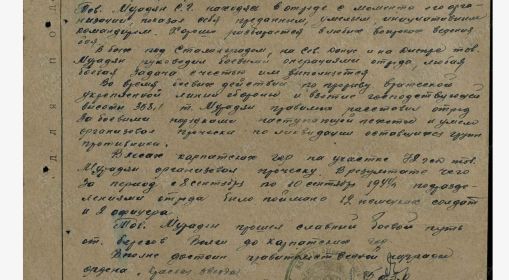 Тов. Мурадян С.Г. находясь в отряде с момента его орга-
низации показал себя преданным, умелым, инициативным
командиром. Хорошо разбирается в любых вопросах ведения
боя.
В боях под Сталинградом, на Сев. Донце и на Днестре тов.
Мурадян руководил боевыми операциями отряда, любая
боевая задача с честью им выполняется.
Во время боевых действий по прорыву вражеской
укрепленной линии обороны и взятие господствующей
высоты т. Мурадян правильно расставил отряд
за боевыми порядками наступающей пехоты и умело
организовал прочески по ликвидации оставшихся групп
противника.
В лесах карпатских гор на участке тов.
Мурадян организовал проческу. В результате чего
за период с 8 сентября по 10 сентября 1944 подразде-
лениями отряда было поймано 12 немецких солдат
и 2 офицера.
Тов. Мурадян прошел славный боевой путь
от берегов Волги до карпатских гор
Вполне достоин правительственной награды
ордена "Красная Звезда"
для под